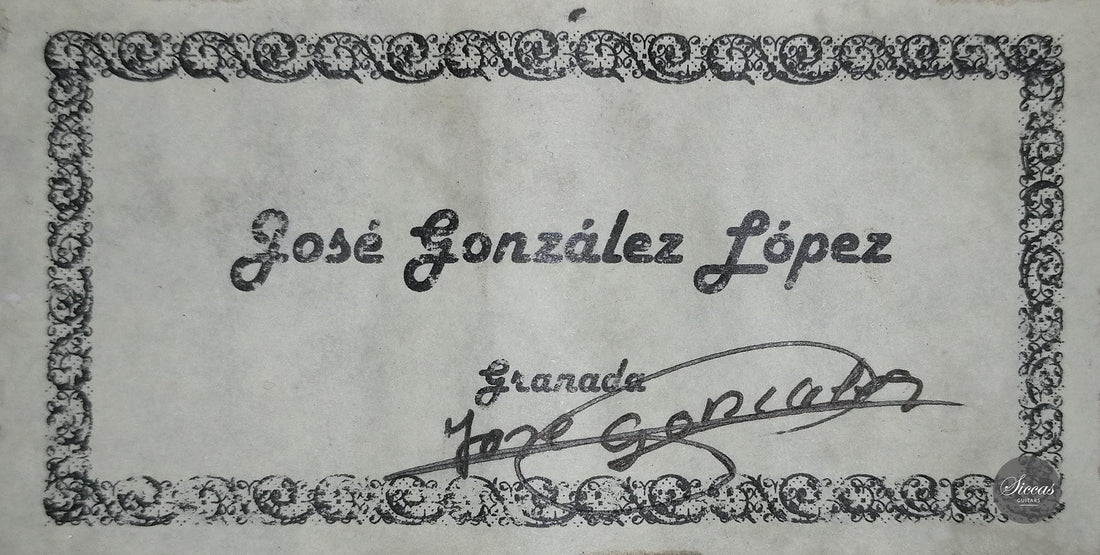 José González López
Granada
Jose Gonzalez
Siccas
GUITARS